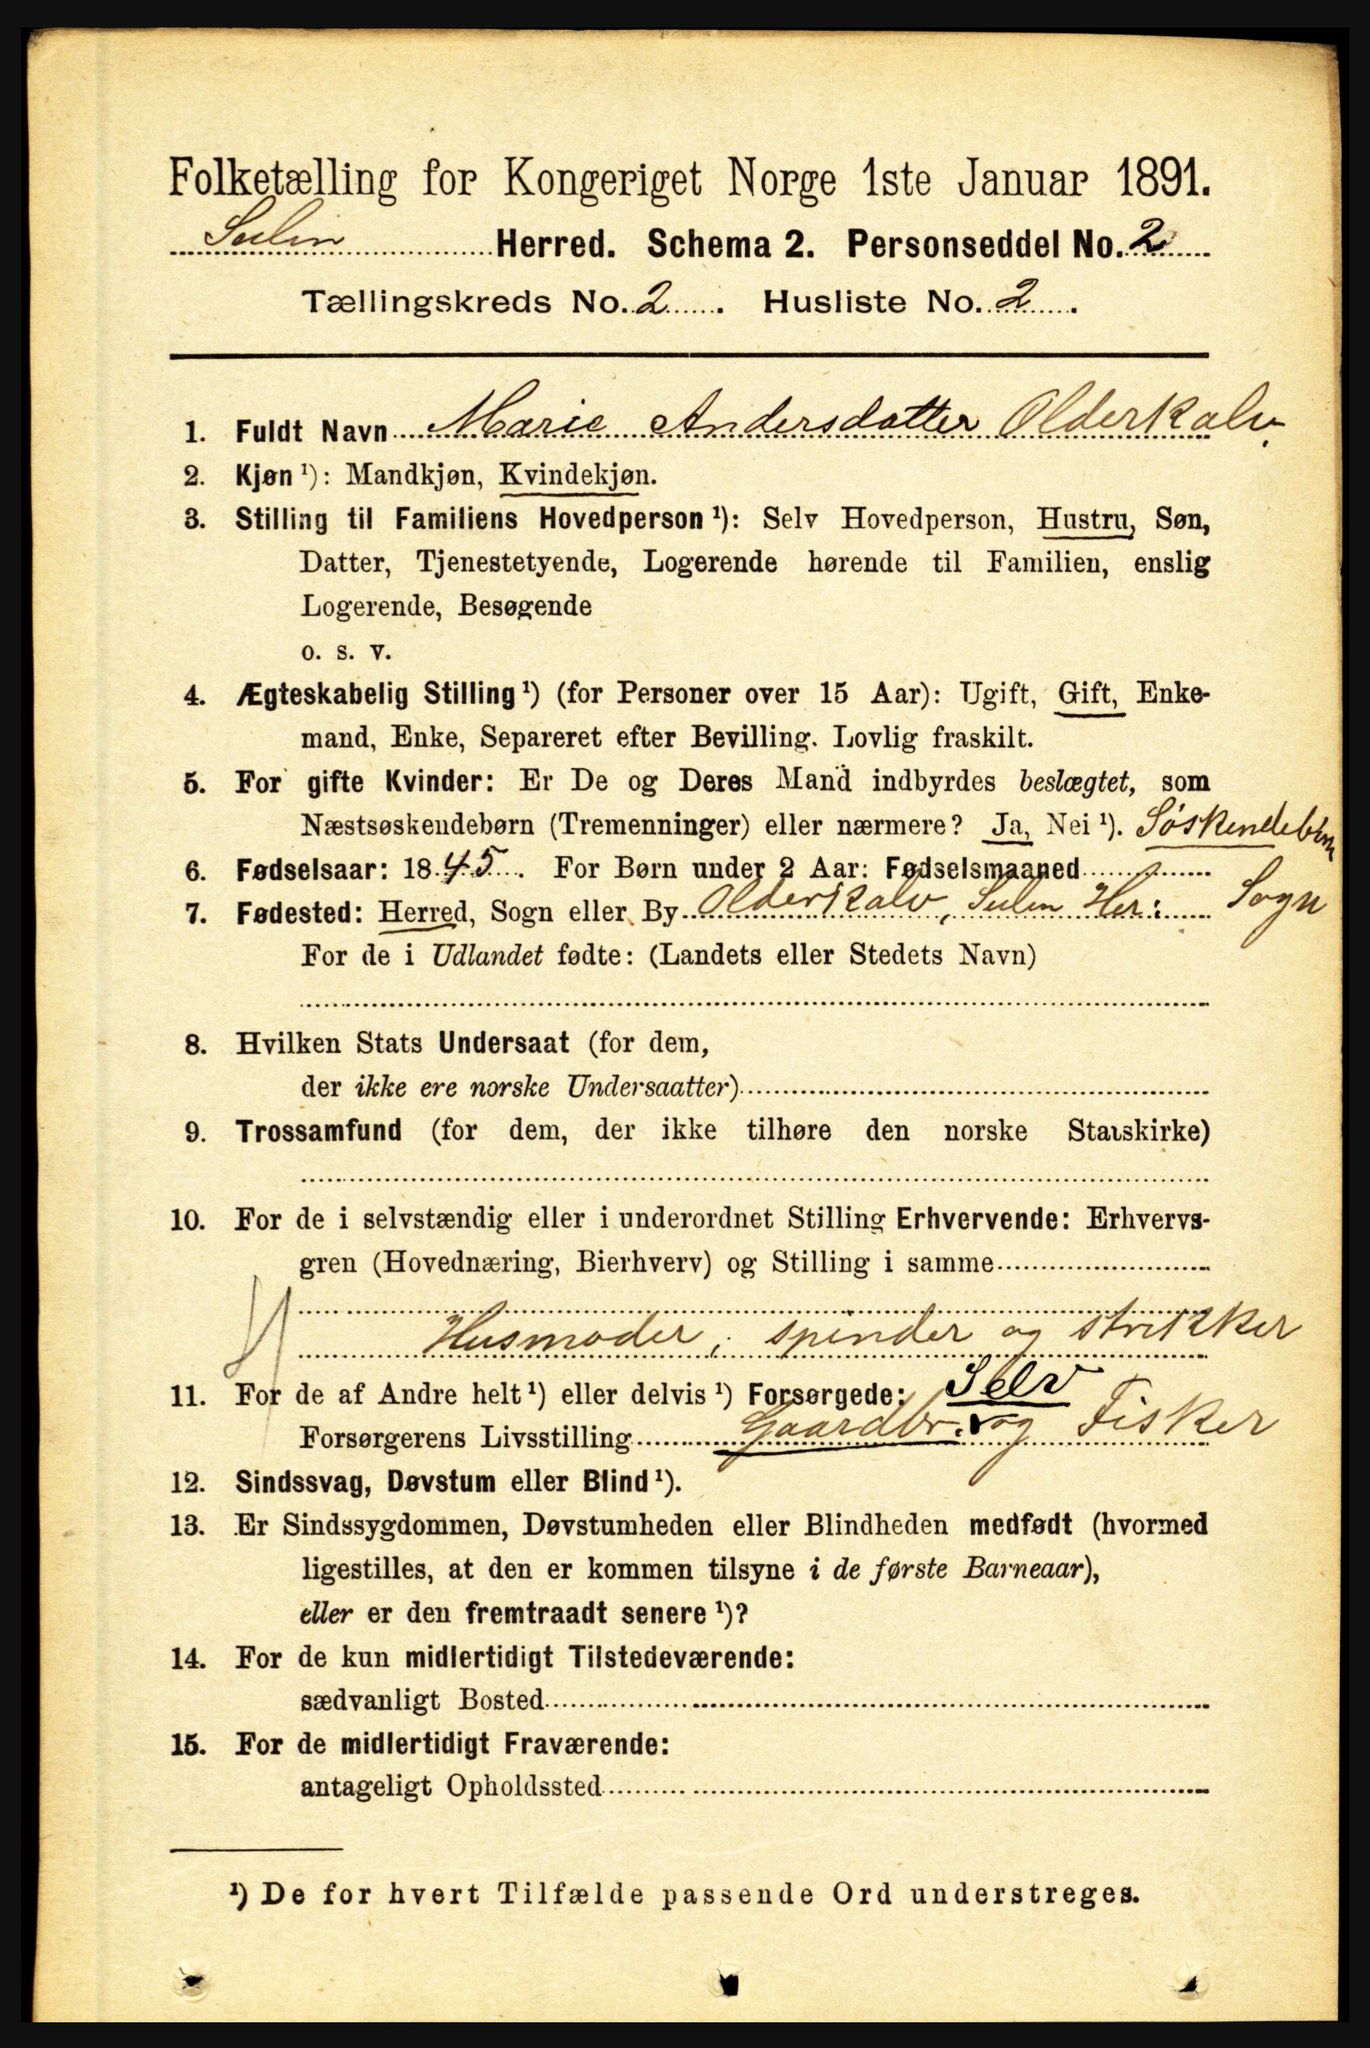 Folketælling for Kongeriget Norge 1ste Januar 1891.
Sulen Herred. Schema 2. Personseddel No. 2
Tællingskreds No. 2. Husliste No. 2.
1. Fuldt Navn Marie Andersdatter Olderkalv.
2. Kjøn ¹): Mandkjøn, Kvindekjøn.
3. Stilling til Familiens Hovedperson ¹): Selv Hovedperson, Hustru, Søn,
Datter, Tjenestetyende, Logerende hørende til Familien, enslig
Logerende, Besøgende
o. s. v.
4. Ægteskabelig Stilling ¹) (for Personer over 15 Aar): Ugift, Gift, Enke-
mand, Enke, Separeret efter Bevilling. Lovlig fraskilt.
5. For gifte Kvinder: Er De og Deres Mand indbyrdes beslægtet, som
Næstsøskendebørn (Tremenninger) eller nærmere? Ja, Nei ¹). Söskendebörn
6. Fødselsaar: 1845. For Børn under 2 Aar: Fødselsmaaned
7. Fødested: Herred, Sogn eller By Olderkalv, Sulen Her: Sogn
For de i Udlandet fødte: (Landets eller Stedets Navn)
8. Hvilken Stats Undersaat (for dem,
der ikke ere norske Undersaatter)
9. Trossamfund (for dem, der ikke tilhøre den norske Statskirke)
10. For de i selvstændig eller i underordnet Stilling Erhvervende: Erhvervs-
gren (Hovednæring, Bierhverv) og Stilling i samme
Husmoder, spinder og strikker
11. For de af Andre helt ¹) eller delvis ¹) Forsørgede: Selv
Forsørgerens Livsstilling Gaardbr. og Fisker
12. Sindssvag, Døvstum eller Blind ¹).
13. Er Sindssygdommen, Døvstumheden eller Blindheden medfødt (hvormed
ligestilles, at den er kommen tilsyne i de første Barneaar),
eller er den fremtraadt senere ¹)?
14. For de kun midlertidigt Tilstedeværende:
sædvanligt Bosted
15. For de midlertidigt Fraværende:
antageligt Opholdssted
¹) De for hvert Tilfælde passende Ord understreges.